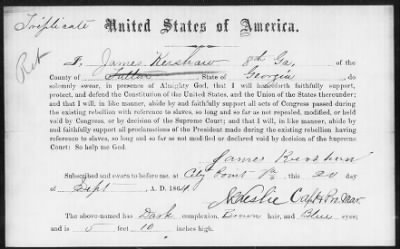 Triplicate
United States of America.
Ret
I, James Kershaw 8th Ga, of the
County of Fulton, State of Georgia, do
solemnly swear, in presence of Almighty God, that I will henceforth faithfully support,
protect, and defend the Constitution of the United States, and the Union of the States thereunder;
and that I will, in like manner, abide by and faithfully support all acts of Congress passed during
the existing rebellion with reference to slaves, so long and so far as not repealed, modified, or held
void by Congress, or by decision of the Supreme Court; and that I will, in like manner, abide by
and faithfully support all proclamations of the President made during the existing rebellion having
reference to slaves, so long and so far as not modified or declared void by decision of the Supreme
Court: So help me God.
James Kershaw
Subscribed and sworn to before me, at City Point Va, this 20 day
of Sept, A. D. 1864.
Leslie Capt & Pro Mar.
The above-named has Dark complexion, Brown hair, and Blue eyes;
and is 5 feet 10 inches high.